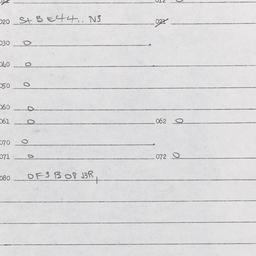 020 St B E44.. N3 021
030 0
040 0
050 0
060 0
061 0 062 0
070 0
071 0 072 0
080 OF3 B OP